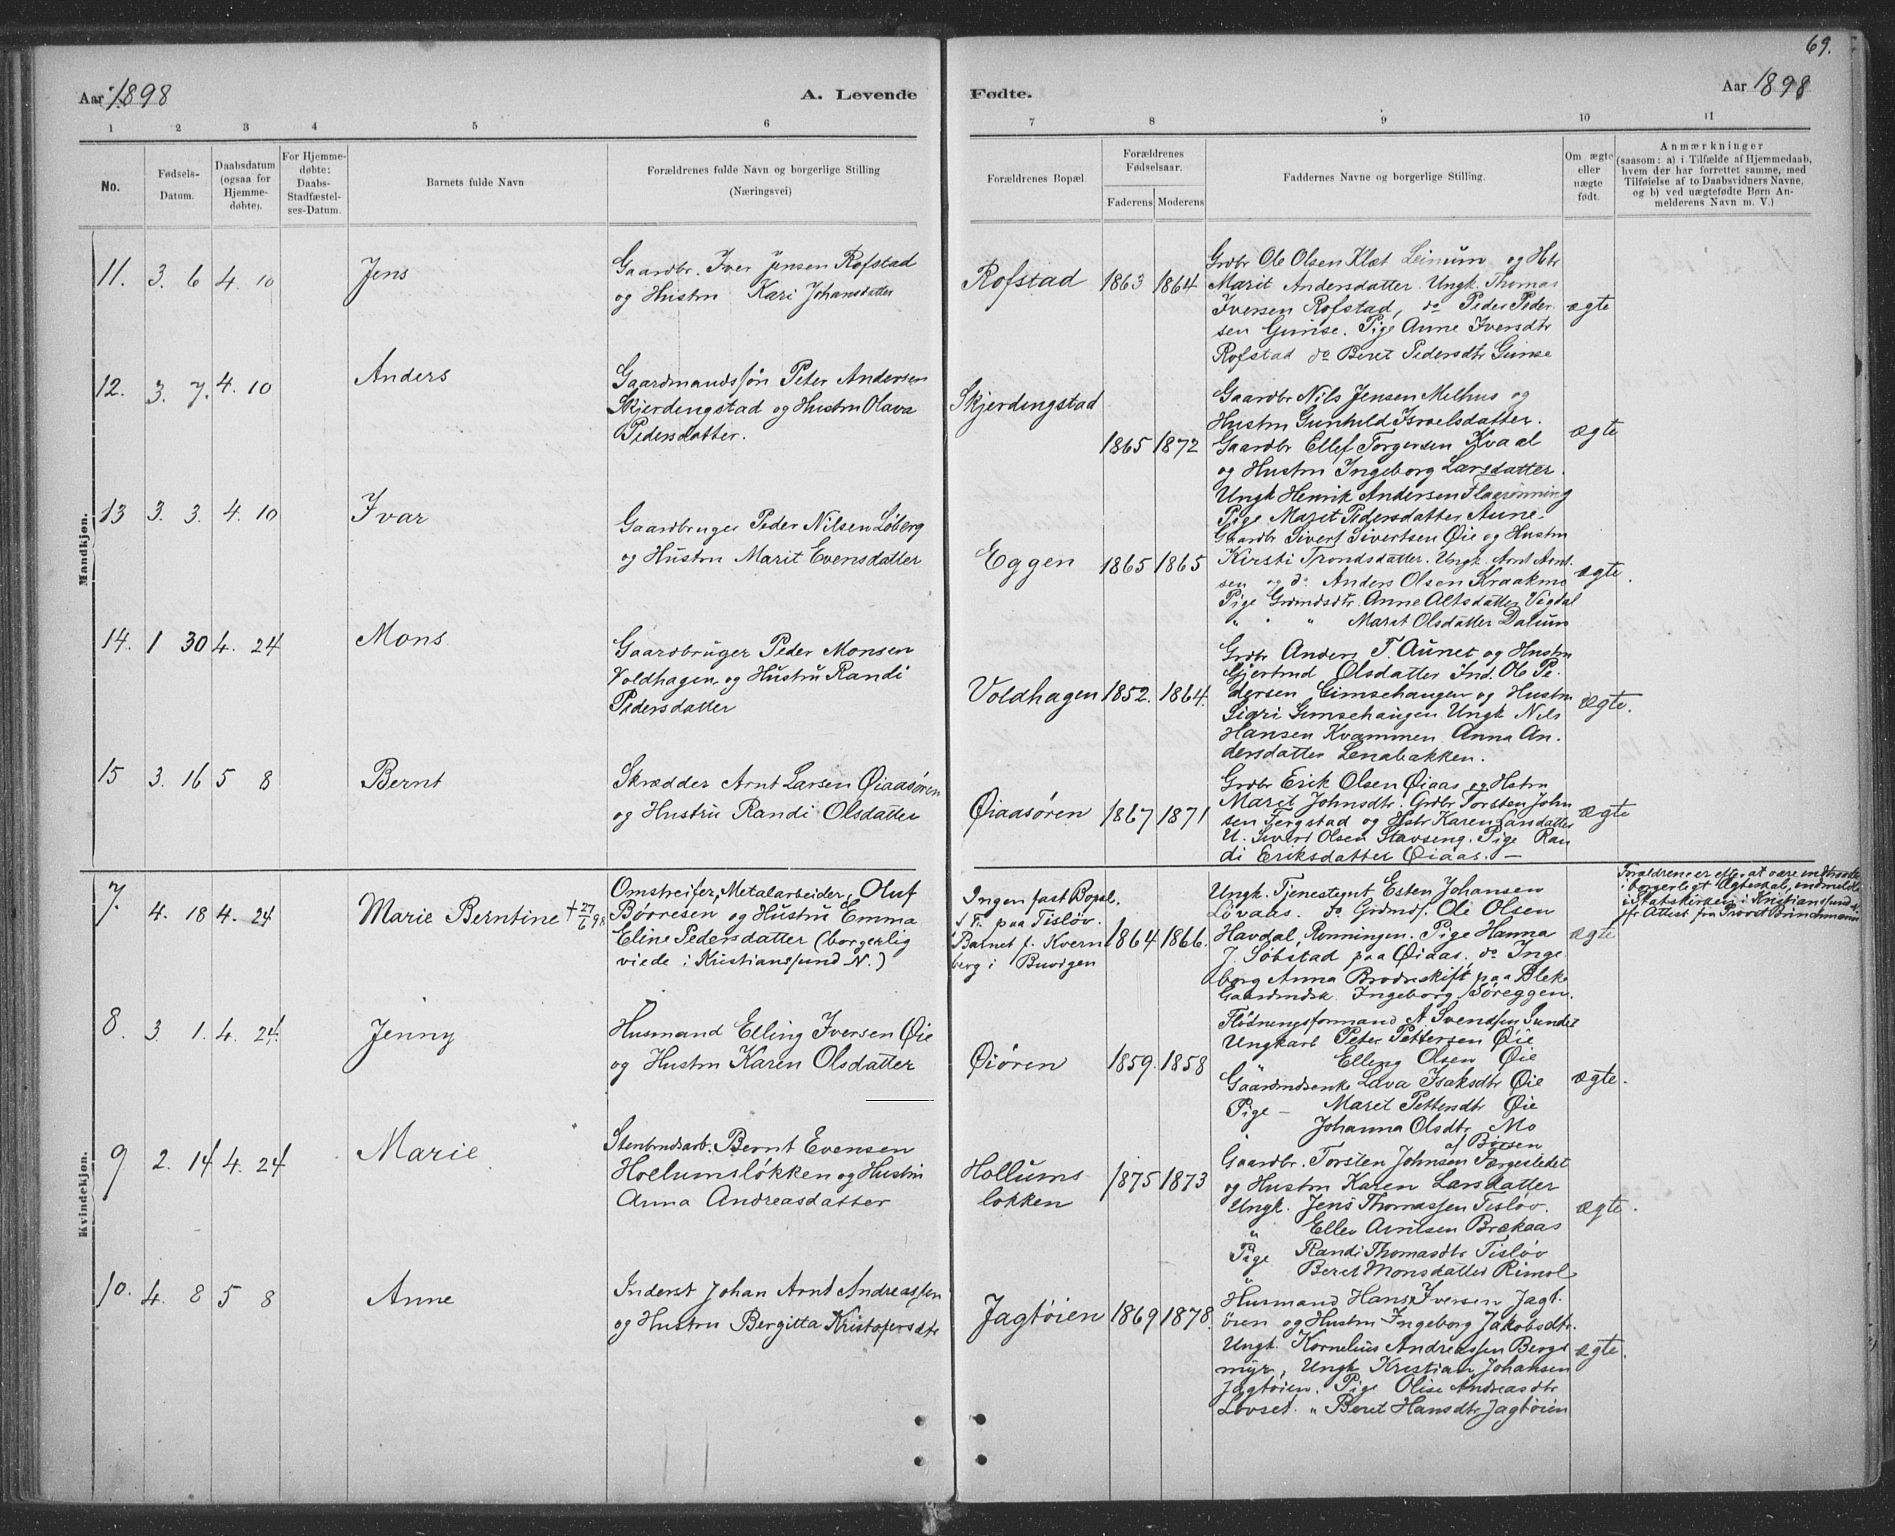 69.
Aar 1898
A. Levende
Fødte.
Aar 1898
1 2 3 4 5 6
7 8 9 10 11
No.
Fødsels-
Datum.
Daabsdatum
(ogsaa for
Hjemme-
døbte).
For Hjemme-
døbte:
Daabs-
Stadfæstel-
ses-Datum.
Barnets fulde Navn
Forældrenes fulde Navn og borgerlige Stilling
(Næringsvei)
Forældrenes Bopæl.
Forældrenes
Fødselsaar.
Faderens Moderens
Faddernes Navne og borgerlige Stilling.
Om ægte
eller
uægte
født.
Anmærkninger
(saasom: a) i Tilfælde af Hjemmedaab,
hvem der har forrettet samme, med
Tilføielse af to Daabsvidners Navne,
og b) ved uægtefødte Børn An-
melderens Navn m. V.)
Mandkjøn.
11. 3. 6 4. 10
Jens
Gaardbr. Iver Jensen Rofstad
og Hustru Kari Johansdatter
Rofstad 1863 1864
Grdbr Ole Olsen Klæt Leinum og Htr
Marit Andersdatter. Ungk. Thomas
Iversen Rofstad, do Peder Peder
sen Gimse. Pige Anne Iversdtr
Rofstad do Beret Pedersdtr Gimse
ægte
12. 3. 7. 4. 10
Anders
Gaardmandssøn Peter Andersen
Skjerdingstad og Hustru Olava
Pedersdatter.
Skjerdingstad
1865 1872
Gaardbr Nils Jensen Melhus og
Hustru Gunhild Israelsdatter.
Gaardbr Ellef Torgersen Kvaal
og Hustru Ingeborg Larsdatter.
Ungk Henrik Andersen Flaarønning
Pige Marit Pedersdatter Aune
ægte
13 3. 3. 4. 10
Ivar
Gaardbruger Peder Nilsen Løberg
og Hustru Marit Evensdatter
Eggen 1865 1865
Gaardbr Sivert Sivertsen Øie og Hustru
Kirsti Trondsdatter. Ungk. Arnt Arnt-
sen og do Anders Olsen Kraakmo
Pige Grdmdsdtr. Anne Altsdatter Vigdal
" " " Marit Olsdatter Dalum
ægte.
14. 1 30 4. 24
Mons
Gaardbruger Peder Monsen
Voldhagen og Hustru Randi
Pedersdatter
Voldhagen 1852. 1864.
Grdbr Anders T. Aunet og Hustru
Gjertrud Olsdatter. Ind. Ole Pe-
dersen Gimsehaugen og Hustru
Sigri Gimsehaugen Ungk Nils
Hansen Kvammen. Anna An-
dersdatter Lenabakken.
ægte.
15 3. 16 5 8
Bernt
Skrædder Arnt Larsen Øiaasøren
og Hustru Randi Olsdatter
Øiaasøren 1867 1871
Grdbr Erik Olsen Øiaas og Hstru
Marit Johnsdtr. Grdbr Torsten John
sen Fergstad og Hstr Karen Larsdatter
U. Sivert Olsen Stavseng. Pige Ran
di Eriksdatter Øiaas. —
ægte
Kvindekjøn.
7. 4. 18 4. 24
Marie Berntine † 27/6 98
Omstreifer, Metalarbeider, Oluf
Børresen og Hustru Emma
Eline Pedersdatter (borgerlig
viede i Kristianssund N.)
Ingen fast Bopæl.
f. T. paa Tisløv.
Barnet f. Kvern
berg i Buvigen
1864 1866.
Ungk. Tjenestgut Esten Johansen
Løvaas. do Grdmds. Ole Olsen
Havdal, Rønningen. Pige Hanna
J. Søbstad paa Øiaas. do Inge
borg Anna Brodreskift paa Bleke
Gaardmdsk. Ingeborg Søreggen.
ægte
Forældrene er efter at være indtraadt
i borgerligt Ægteskab, indmeldt
i Statskirken i Kristianssund N.
ifr Attest fra Provst Brinchmann
8. 3 1. 4. 24.
Jenny
Husmand Elling Iversen Øie
og Hustru Karen Olsdatter
Øiøren 1859. 1858
Flødningsformand A Svendsen Sundet
Ungkarl Peter Pettersen Øie
" Elling Olsen Øie
Gaardmdsenke Lava Isaksdtr Øie
Pige — Marit Pettersdtr Øie
Johanna Olsdtr Mo
af Børsen
ægte.
9 2. 14 4. 24
Marie
Stenbrudsarb. Bernt Evensen
Hollumsløkken og Hustru
Anna Andreasdatter
Hollums
løkken
1875 1873
Gaardbr. Torsten Johnsen Færgestedet
og Hustru Karen Larsdatter
Ungk. Jens Thomassen Tisløv.
" Ellev Arntsen Brækaas
Pige Randi Thomasdtr Tisløv
" Beret Monsdatter Rimol
ægte.
10. 4. 8 5 8
Anne
Inderst Johan Arnt Andreassen
og Hustru Bergitta Kristofersdtr
Jagtøien 1869 1878.
Husmand Hans Iversen Jagt.
øien og Hustru Ingeborg Jakobsdtr.
Ungk. Kornelius Andreassen Bergs
myr, Ungk Kristian Johansen
Jagtøien. Pige Olise Andreasdtr
Løvset. " Beret Hansdtr Jagtøien
ægte.